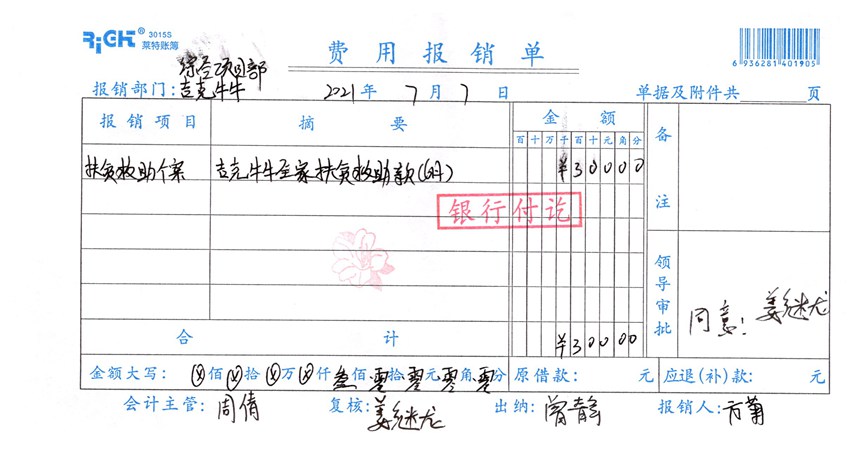 RiCH® 3015S
莱特账簿
费用报销单
6 936281 401905
综合项目部
报销部门:吉克牛牛 2021年7月7日 单据及附件共 页
报销项目 摘要 金额 备注
百十万千百十元角分
扶贫救助个案 吉克牛牛全家扶贫救助款(6月) ¥30000
银行付讫
领导审批 同意! 姜继龙
合计 ¥30000
金额大写: ⊗佰⊗拾⊗万⊗仟叁佰零拾零元零角零分 原借款: 元 应退(补)款: 元
会计主管:周倩 复核:姜继龙 出纳:曾静 报销人:方菊